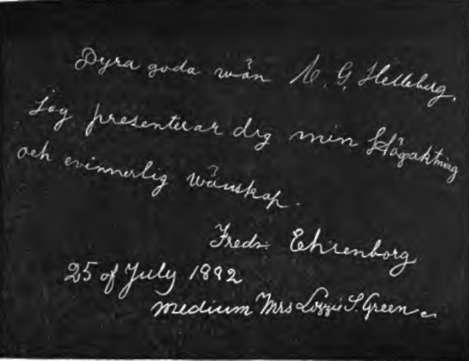 Dyra goda wän A. G. Helleberg,
Jag presenterar dig min Högaktning
och evinnerlig wänskap.
Fredr. Ehrenborg
25 of July 1892
medium Mrs Lizzie S. Green